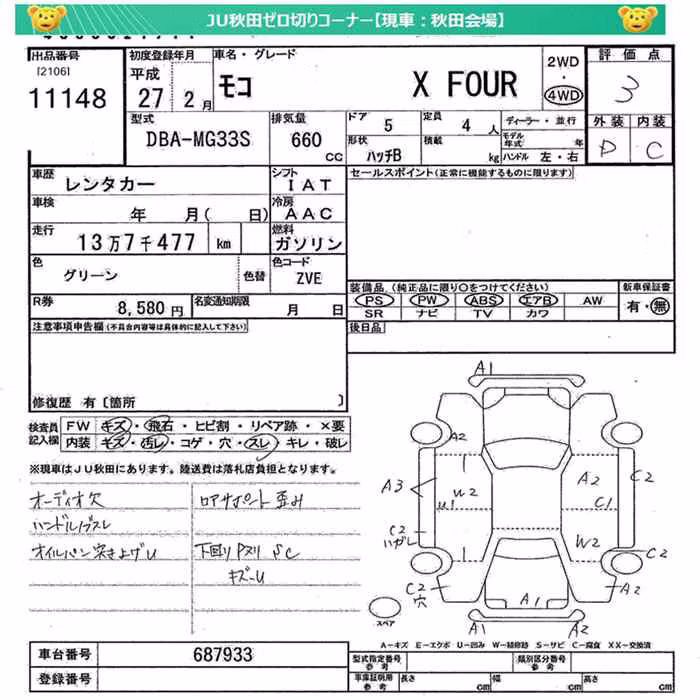 JU秋田ゼロ切りコーナー【現車：秋田会場】
出品番号 初度登録年月 車名・グレード 2WD・4WD 評価点
[2106]
11148
平成 27年 2月
モコ X FOUR
3
型式 DBA-MG33S
排気量 660 cc
ドア 5
形状 ハッチB
定員 4 人
積載 kg
ディーラー・並行
モデル年式 年
ハンドル 左・右
外装 内装
D C
車歴 レンタカー
シフト IAT
セールスポイント(正常に機能するものに限ります)
車検 年 月( 日)
冷房 AAC
走行 13万7千477 km
燃料 ガソリン
色 グリーン 色替
色コード ZVE
R券 8,580 円
名変通知期限 月 日
装備品 (純正品に限り○をつけてください) 新車保証書
PS PW ABS エアB AW 有・無
SR ナビ TV カワ
注意事項申告欄(不具合内容等は具体的に記入して下さい)
後日品
修復歴 有〔箇所 〕
検査員記入欄
FW キズ・飛石・ヒビ割・リペア跡・×要
内装 キズ・汚レ・コゲ・穴・スレ・キレ・破レ
※現車はJU秋田にあります。陸送費は落札店負担となります。
オーディオ欠
ハンドル
オイルパン突き上げU
リアサポート歪み
下回り
S C
キズ-U
A1
A2
A3
W2
U1
A2
C2
C1
W2
C2
ハガレ
C2
穴
C2
A2
A1
A1
A2
スペア
A－キズ E－エクボ U－凹み W－補修跡 S－サビ C－腐食 XX－交換済
車台番号 687933
登録番号
型式指定番号 参考
類別区分番号 参考
車庫証明用 参考 長さ cm 幅 cm 高さ cm